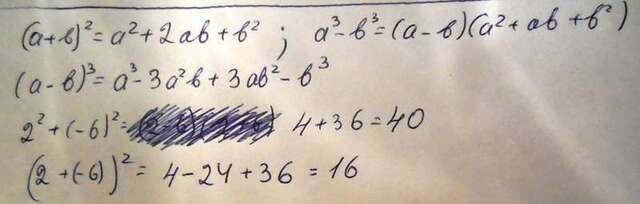 (a+b)²=a²+2ab+b² ; a³-b³=(a-b)(a²+ab+b²)
(a-b)³=a³-3a²b+3ab²-b³
2²+(-6)²= 4+36=40
(2+(-6))²= 4-24+36=16